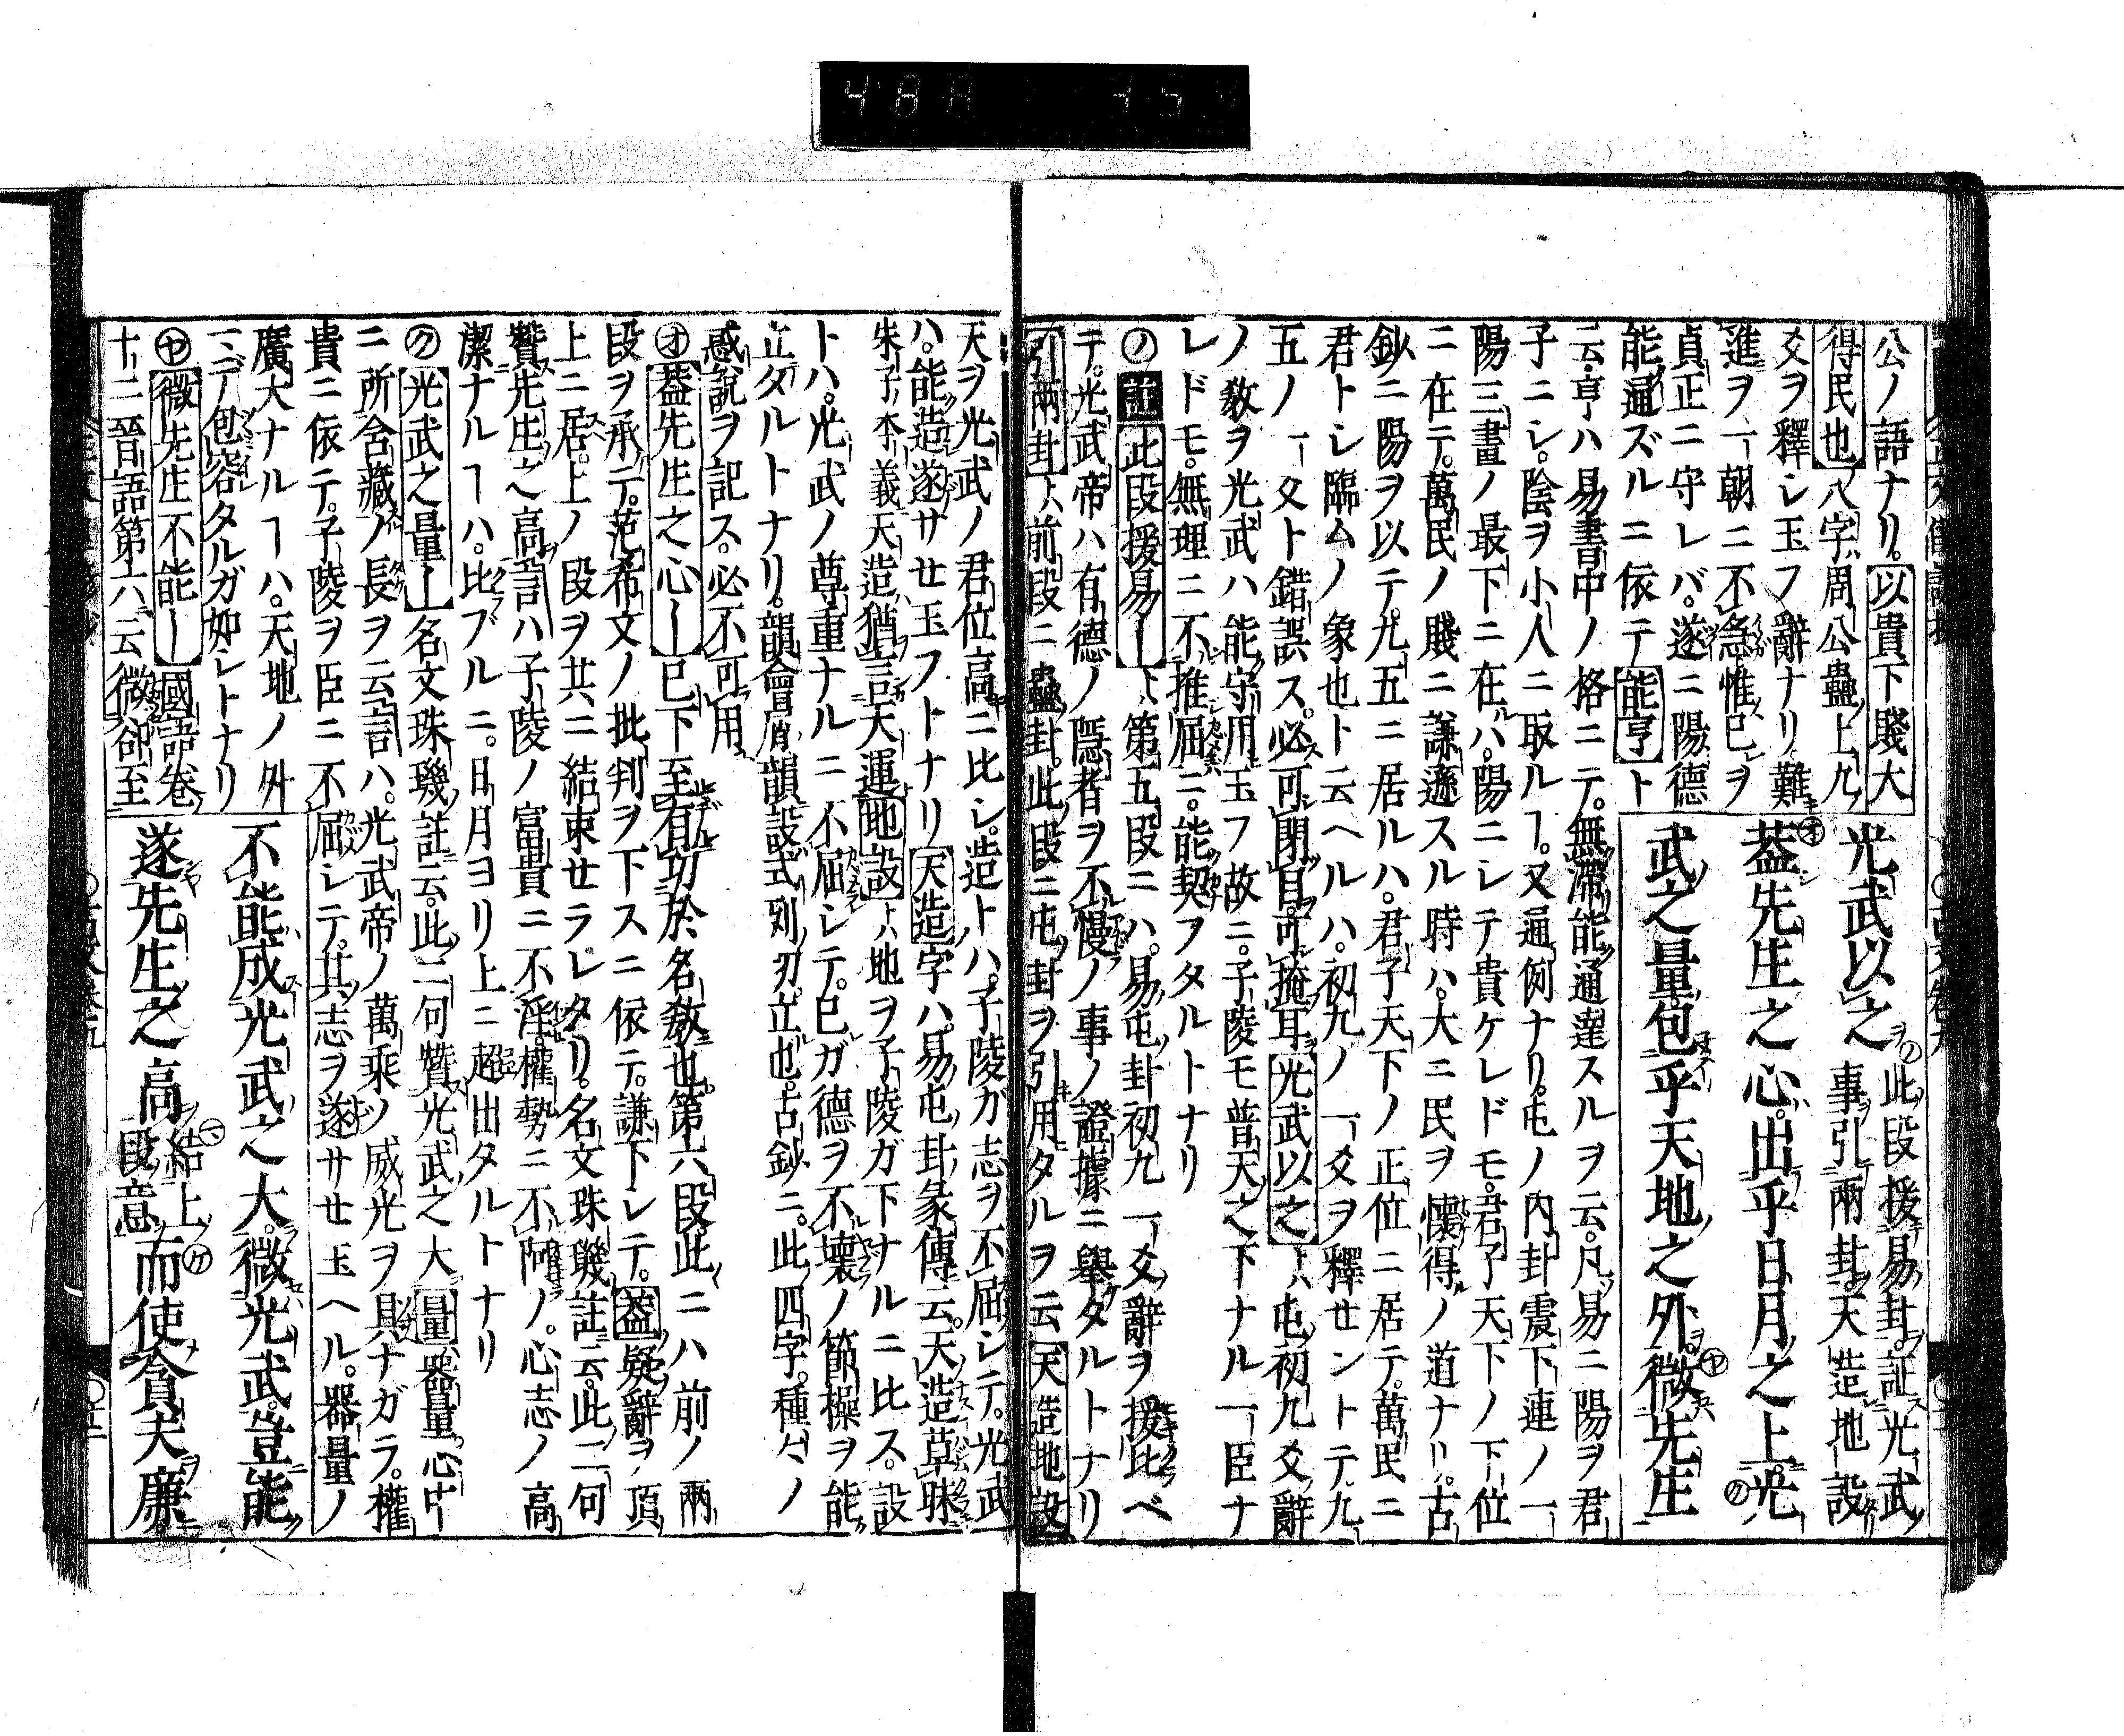 公ノ語ナリ。以貴下賤大
得民也八字ハ周公蠱ノ上九ノ
爻ヲ釋シ玉フ辭ナリ難
進ヲ一朝ニ不急惟巳ヲ
貞正ニ守レバ遂ニ陽德
能通ズルニ依テ能亨ト
光武以之
此段援易卦。証光武
事引兩卦。天造地設
蓋先生之心。出乎日月之上。光
武之量。包乎天地之外。微先生
云亨ハ易書中ノ格ニテ。無滯能通達スルヲ云。凡易ニ陽ヲ君
子ニシ。陰ヲ小人ニ取ルヿ。又通例ナリ。屯ノ內卦震下連ノ一
陽三畫ノ最下ニ在ハ。陽ニシテ貴ケレドモ。君子天下ノ下位
ニ在テ。萬民ノ賤ニ謙遜スル時ハ。大ニ民ヲ懷得ノ道ナリ。古
鈔ニ陽ヲ以テ。九五ニ居ルハ。君子天下ノ正位ニ居テ。萬民ニ
君トシ臨ムノ象也ト云ヘルハ。初九ノ一爻ヲ釋セントテ。九
五ノ一爻ト錯誤ス。必可閉目。可掩耳光武以之ㇵ屯ノ初九爻辭
ノ敎ヲ光武ハ能守用玉フ故ニ。子陵モ普天之下ナル一臣ナ
レドモ。無理ニ不推屈ニ。能契フタルトナリ
ノ註此段援易ーㇵ第五段ニハ。易ノ屯卦初九一爻ノ辭ヲ援比ベ
テ。光武帝ハ有德ノ隱者ヲ不慢ノ事ノ證據ニ擧タルトナリ
引兩卦ㇵ前段ニ蠱卦。此段ニ屯卦ヲ引用タルヲ云天造地設
天ヲ光武ノ君位高ニ比シ。造トハ。子陵ガ志ヲ不屈シテ。光武
ハ。能造遂サセ玉フトナリ天造字ハ。易ノ屯卦彖傳云。天造草昧
朱子本義天造猶言天運地設ㇵ地ヲ子陵ガ下ナルニ比ス。設
トハ。光武ノ尊重ナルニ不屈シテ。巳ガ德ヲ不壞ノ節操ヲ能
立タルトナリ。韻會屑韻設式列切。立也。古鈔ニ。此四字。種々ノ
惑說ヲ記ス。必不可用
オ蓋先生之心ー巳下至有功於名敎也。第六段。此ニハ前ノ兩
段ヲ承テ。范希文ノ批判ヲ下スニ依テ。謙下シテ。蓋疑辭ヲ頂
上ニ居。上ノ段ヲ共ニ結束セラレタリ。名文珠璣註云。此二句
贊先生之高言ハ子陵ノ富貴ニ不淫。權勢ニ不阿ノ。心志ノ高
潔ナルヿハ。比ブルニ。日月ヨリ上ニ超出タルトナリ
ク光武之量ー名文珠璣註云。此二句贊光武之大量器量。心中
ニ所含藏ノ長ヲ云言ハ。光武帝ノ萬乘ノ威光ヲ具ナガラ。權
貴ニ依テ。子陵ヲ臣ニ不屈シテ。其志ヲ遂サセ玉ヘル。器量ノ
廣大ナルヿハ。天地ノ外
ニデ包容タルガ如シトナリ
ヤ微先生不能ー國語卷ノ
十二晉語第六ニ云微郤至
不能成光武之大。微光武。豈能
遂先生之高
結上
段意
而使貪夫廉。